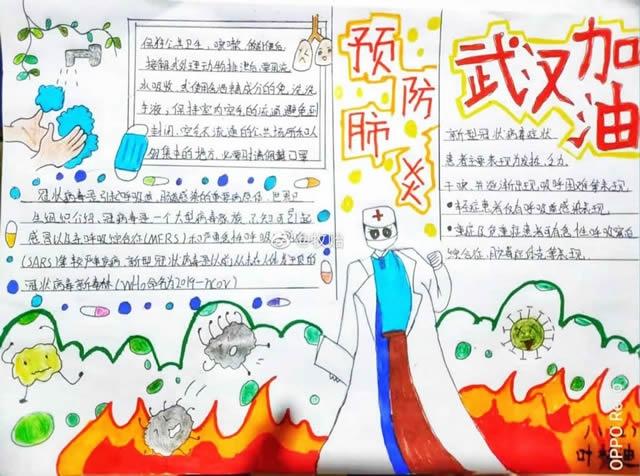 保持个人卫生,咳嗽,做饭便后
接触或处理动物排泄后要用流
水吸收,或使用含酒精成分的免洗洗
手液;保持室内空气的流通,避免到
封闭,空气不流通的公共场所和人
群集中的地方,必要时请佩戴口罩
预防
肺炎
武汉加油
冠状病毒是引起呼吸道,肠道感染的重要病原体,世界卫
生组织介绍,冠病毒是一个大型病毒家族,已知可引起
感冒以及中呼吸综合征(MERS)和严重急性呼吸
(SARS)等较严重疾病,新型冠状病毒是以前从未在人体发现的
冠状病毒新毒株(WHO命名为2019-nCoV)
新型冠状病毒症状
患者主要表现为发热,乏力,
干咳,并逐渐出现呼吸困难等表现
•轻症患者仅有呼吸道感染表现
•重症及危重症患者可有急性呼吸窘迫
综合征,脓毒症休克等表现.
OPPO Reno